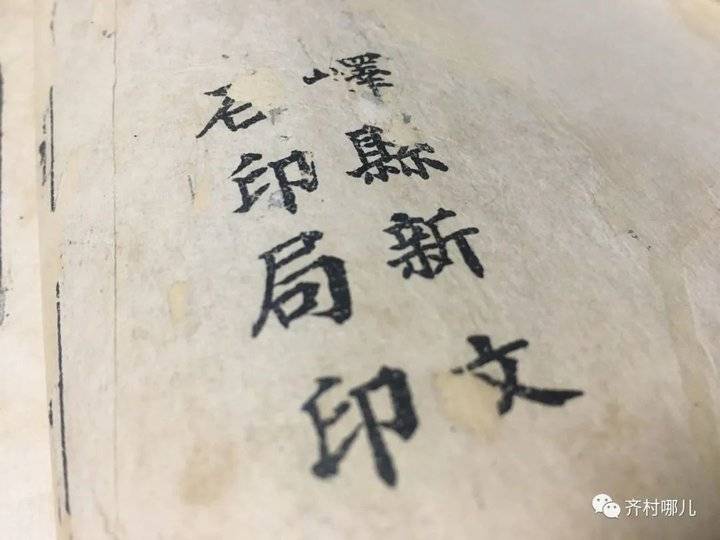 嶧縣新文
石印局印
齐村哪儿